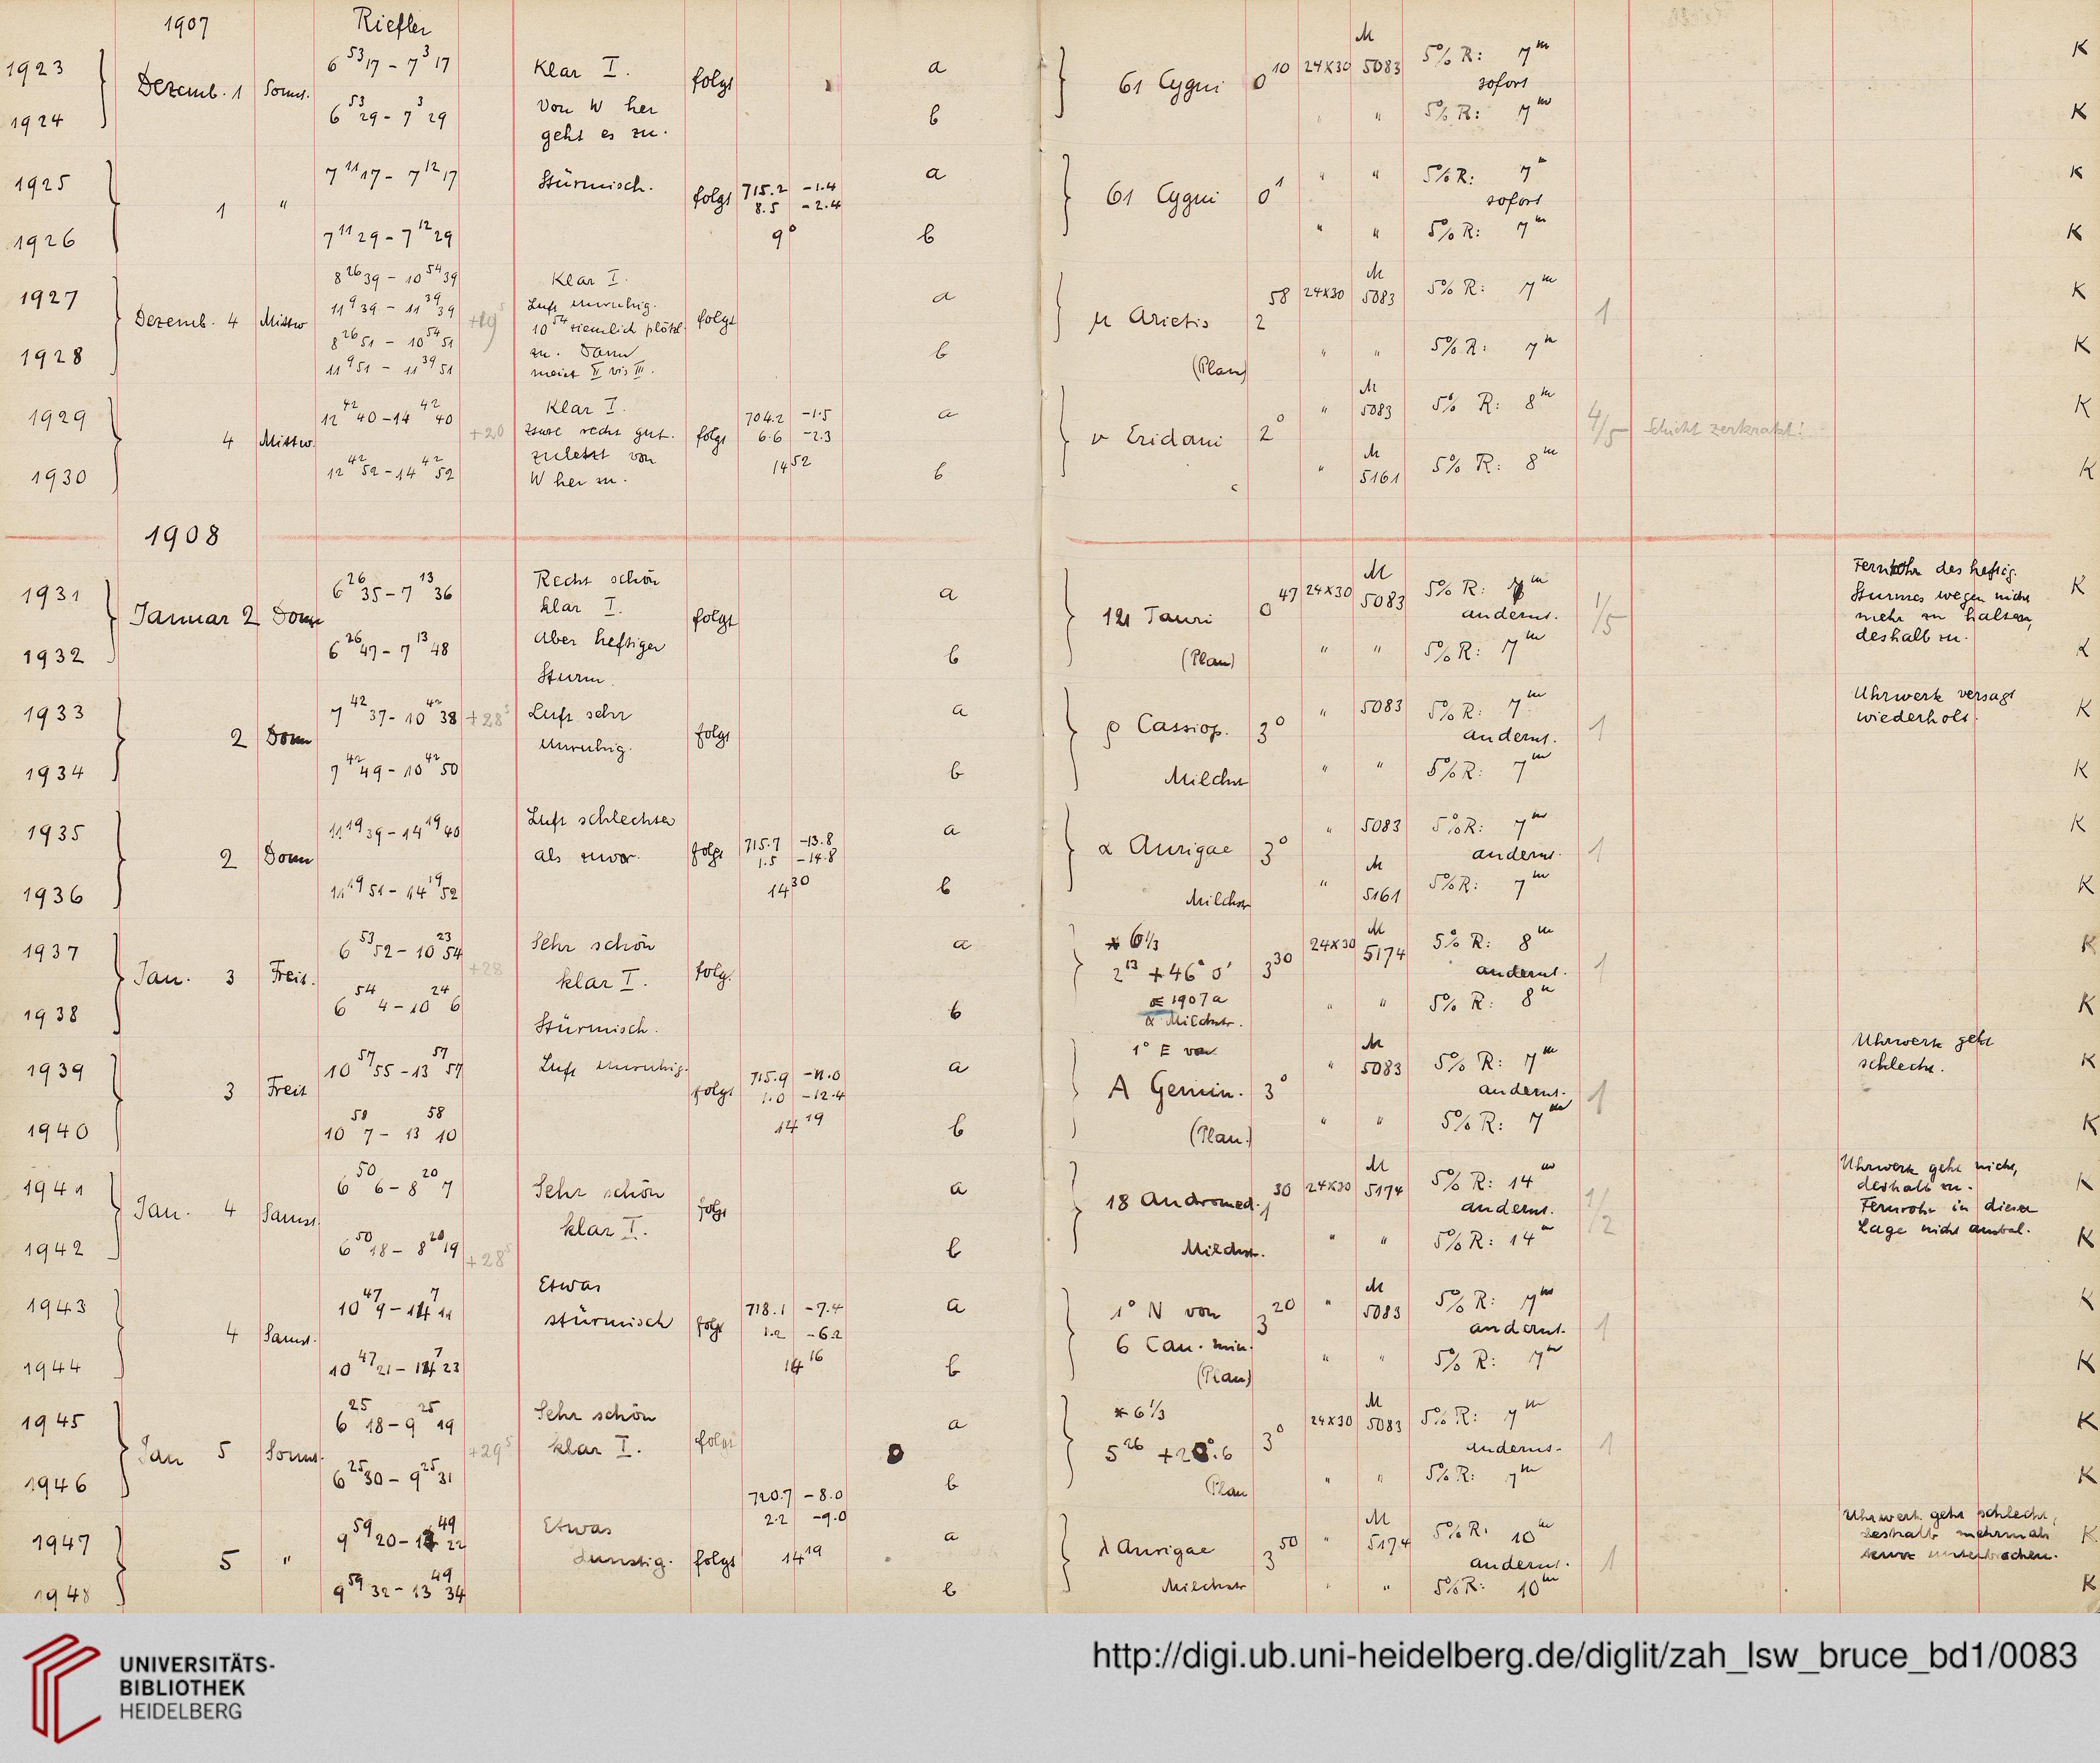 1907 Riefler
1923 Dezemb. 1 Sonnt. 6 53 17 - 7 3 17 Klar I. folgt a 61 Cygni 0 10 24x30 M 5083 5% R: 7m sofort K
1924 6 53 29 - 7 3 29 Von W her geht es zu. b " " 5% R: 7m K
1925 1 " 7 11 17 - 7 12 17 Stürmisch. folgt 715.2 -1.4 a 61 Cygni 0 1 " " 5% R: 7m sofort K
8.5 -2.4
1926 7 11 29 - 7 12 29 9° b " " 5% R: 7m K
1927 Dezemb. 4 Mittw 8 26 39 - 10 54 39 Klar I. folgt a μ Arietis 2 58 24x30 M 5083 5% R: 7m 1 K
11 9 39 - 11 39 39 +19 Luft unruhig.
8 26 51 - 10 54 51 10 54 ziemlich plötzl.
1928 11 9 51 - 11 39 51 zu. Dann meist II bis III. b (Plan) " " 5% R: 7m K
1929 4 Mittw. 12 42 40 - 14 42 40 +20 Klar I. folgt 704.2 -1.5 a ν Eridani 2 0 " M 5083 5% R: 8m 4/5 Schicht zerkratzt! K
recht gut. 6.6 -2.3
zuletzt von
1930 12 42 52 - 14 42 52 W her zu. 14 52 b " M 5161 5% R: 8m K
1908
1931 Januar 2 Donn 6 26 35 - 7 13 36 Recht schön klar I. folgt a 121 Tauri 0 47 24x30 M 5083 5% R: 7m anderns. 1/5 Fernrohr des heftig. K
Sturmes wegen nicht
mehr zu halten,
deshalb zu.
1932 6 26 47 - 7 13 48 Aber heftiger Sturm. b (Plan) " " 5% R: 7m K
1933 2 Donn 7 42 37 - 10 42 38 +28 5 Luft sehr unruhig. folgt a ρ Cassiop. 3 0 " 5083 5% R: 7m anderns. 1 Uhrwerk versagt K
wiederholt.
1934 7 42 49 - 10 42 50 b Milchst " " 5% R: 7m K
1935 2 Donn 11 19 39 - 14 19 40 Luft schlechter folgt 715.7 -13.8 a α Aurigae 3 0 " 5083 5% R: 7m anderns. 1 K
als zuvor. 1.5 -14.8
1936 11 19 51 - 14 19 52 14 30 b Milchstr " M 5161 5% R: 7m K
1937 Jan. 3 Freit. 6 53 52 - 10 23 54 +28 Sehr schön klar I. folg. a * 6 1/3 24x30 M 5174 5% R: 8m anderns. 1 K
2 13 + 46° 0' 3 30
1938 6 54 4 - 10 24 6 Stürmisch. b 1907a " " 5% R: 8m K
α Milchstr.
1939 3 Freit 10 57 55 - 13 57 57 Luft unruhig. folgt 715.9 -11.0 a 1° E von " M 5083 5% R: 7m anderns. 1 Uhrwerk geht K
1.0 -12.4 A Gemin. 3 0 schlecht.
1940 10 58 7 - 13 58 10 14 19 b (Plan.) " " 5% R: 7m K
1941 Jan. 4 Samst. 6 50 6 - 8 20 7 Sehr schön klar I. folgt a 18 Andromed. 1 30 24x30 M 5174 5% R: 14m anderns. 1/2 Uhrwerk geht nicht, K
deshalb zu.
Fernrohr in dieser
1942 6 50 18 - 8 20 19 +28 5 b Milchst. " " 5% R: 14m Lage nicht K
1943 4 Samst. 10 47 9 - 14 7 11 Etwas stürmisch folgt 718.1 -7.4 a 1° N von 3 20 " M 5083 5% R: 7m anderns. 1 K
1.2 -6.2 6 Can. min.
1944 10 47 21 - 14 7 23 14 16 b (Plan) " " 5% R: 7m K
1945 Jan 5 Sonnt. 6 25 18 - 9 25 19 +29 5 Sehr schön klar I. folgt a * 6 1/3 24x30 M 5083 5% R: 7m anderns. 1 K
5 26 3 0
1946 6 25 30 - 9 25 31 b Plan " " 5% R: 7m K
720.7 -8.0
2.2 -9.0
1947 5 " 9 59 20 - 13 49 22 Etwas dunstig. folgt 14 19 a λ Aurigae 3 50 " M 5174 5% R: 10m anderns. 1 Uhrwerk geht schlecht, K
deshalb mehrmals
kurz unterbrochen.
1948 9 59 32 - 13 49 34 b Milchstr " " 5% R: 10m K
UNIVERSITÄTS-
BIBLIOTHEK
HEIDELBERG
http://digi.ub.uni-heidelberg.de/diglit/zah_lsw_bruce_bd1/0083